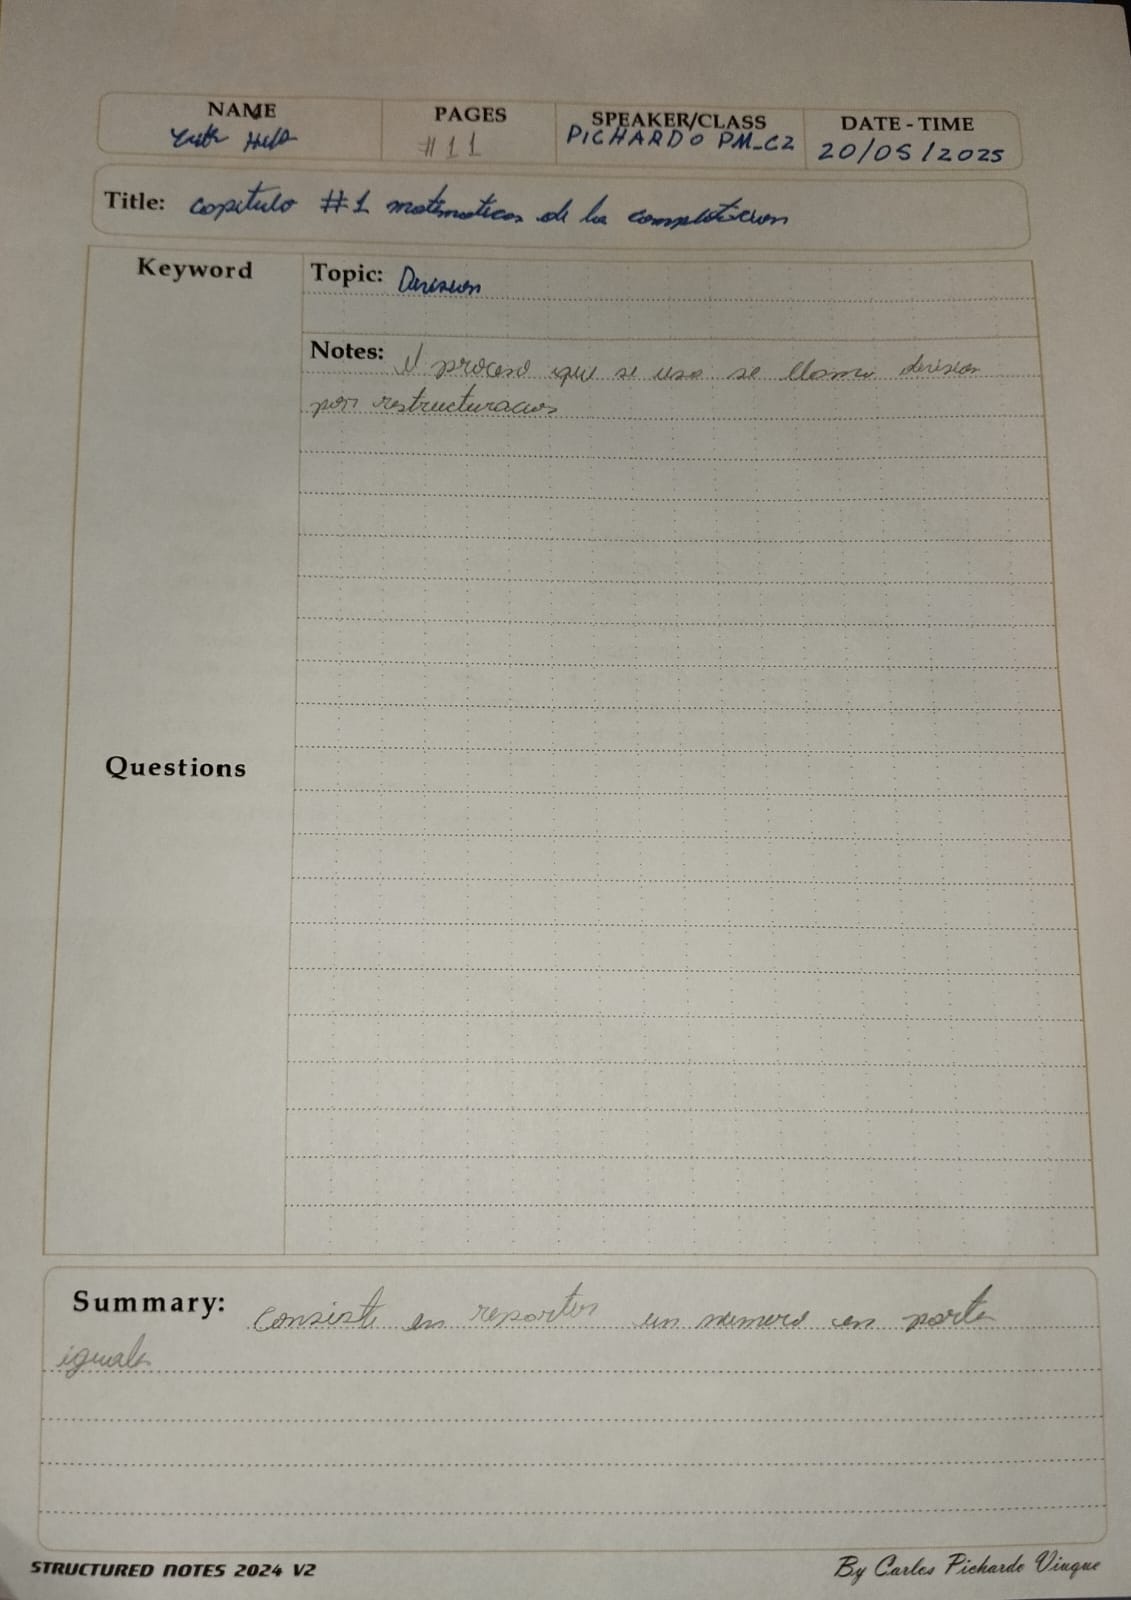 NAME
PAGES
SPEAKER/CLASS
DATE - TIME
# 11
PICHARDO PM-C2
20/05/2025
Title: capitulo #1 matematicas de la computacion
Keyword
Topic: Division
Notes: el proceso que se usa se llama division
por restructuracion
Questions
Summary: Consiste en repartir un numero en parte
iguale
STRUCTURED NOTES 2024 V2
By Carlos Pichardo Viuque